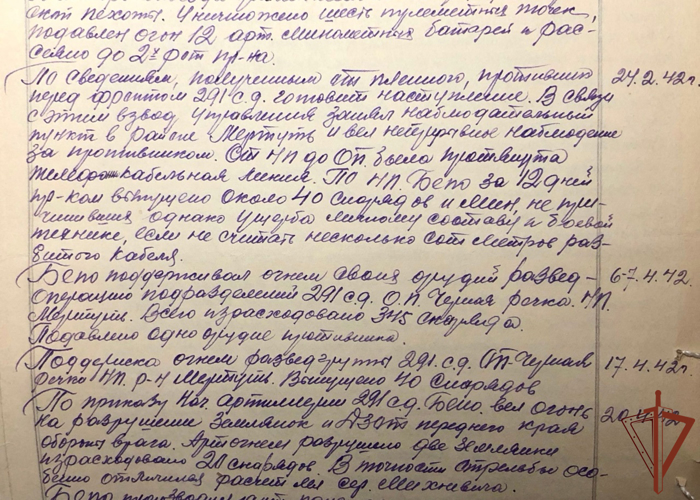 пехоты. Уничтожено шесть пулеметных точек,
подавлен огон 12 арт. минометных батарей и рас-
сеяно до 2х рот пр-ка.
По сведениям, полученным от пленного, противник 24.2.42г.
перед фронтом 291 с.д. готовит наступление. В связи
с этим взвод управления занял наблюдательный
пункт в районе Мертуть и вел непрерывное наблюдение
за противником. От НП до ОП. была протянута
кабельная линия. По НП. Бепо за 12 дней
пр-ком выпущено около 40 снарядов и мин, не при-
чинивших однако ущерба личному составу и боевой
технике, если не считать несколько сот метров раз-
битого кабеля.
Бепо поддерживал огнем своих орудий развед- 6-7.4.42г.
операцию подразделений 291 с.д. О.П. Черная речка. НП.
Мертуть. Всего израсходовано 345 снаряда.
Подавлено одно орудие противника.
Поддержка огнем разведгруппы 291. с.д. ОП. Черная 17.4.42г.
речка НП. р-н Мертуть. Выпущено 40 снарядов
По приказу Нач. артиллерии 291 с.д. Бепо. вел огонь
на разрушение землянок и ДЗОТ переднего края
обороны врага. Артогнем разрушено две землянки
израсходовано 20 снарядов. В точности стрельбы осо-
бенно отличился расчет мл. сер. Михневича.
Бепо